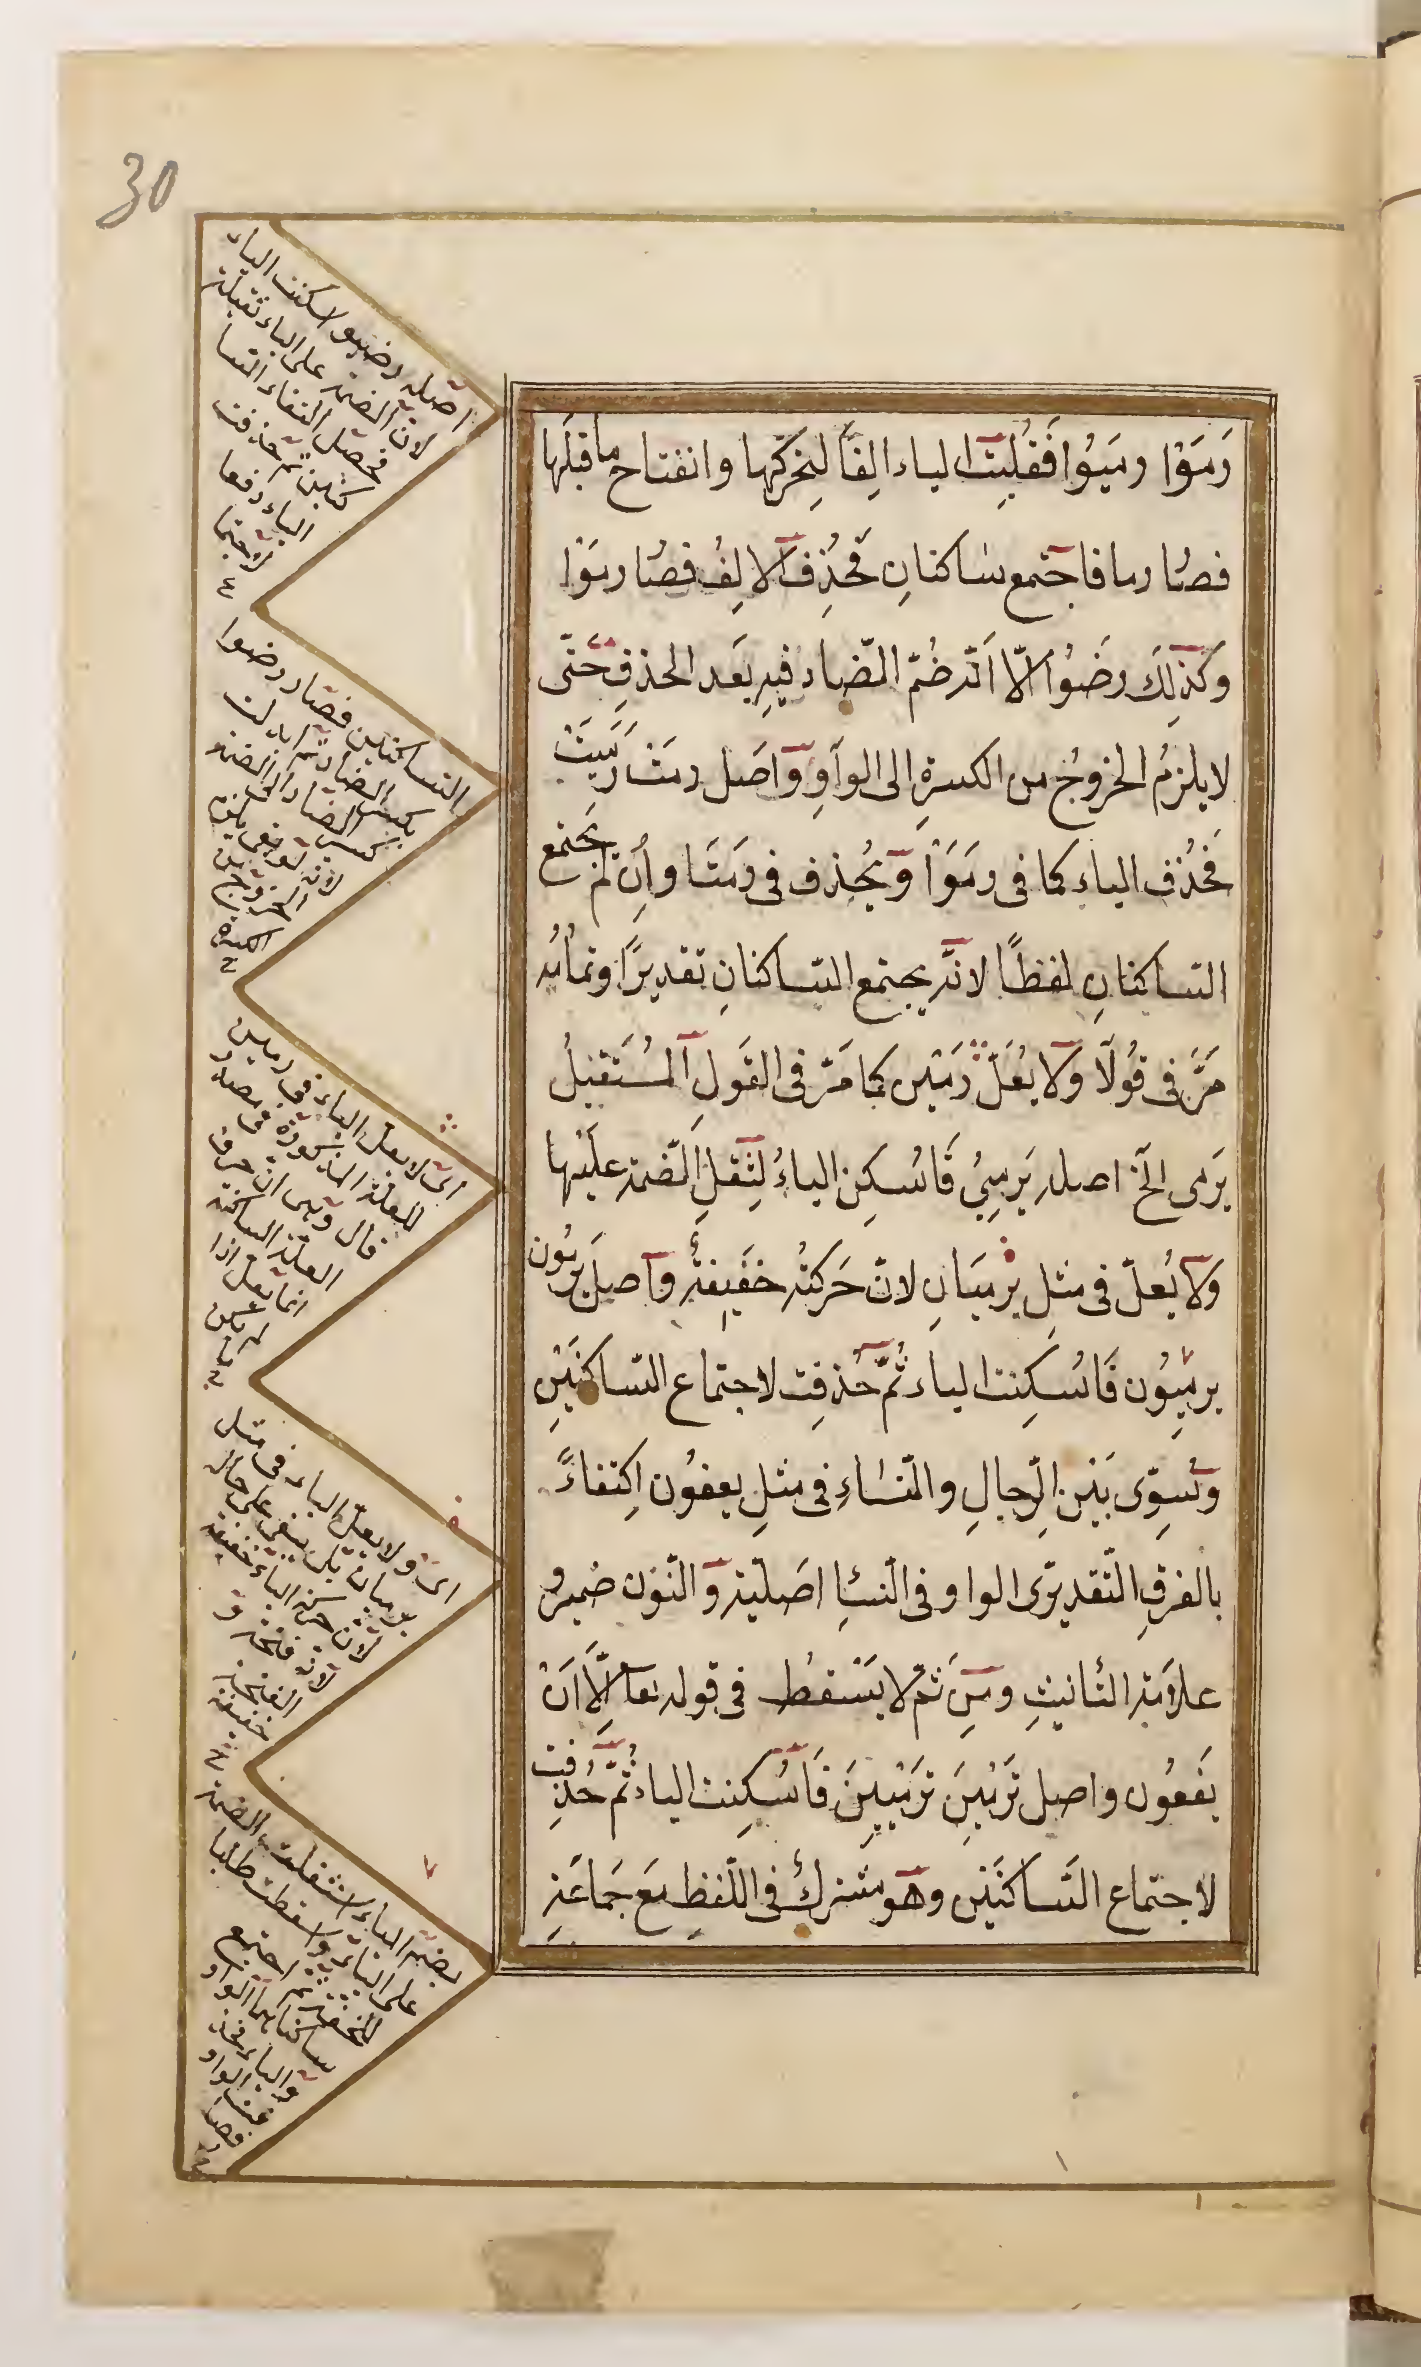 30
رَمَوْا رميُوا فَقُلِبَتِ الياء الِفًا لِتحرّكها وانفتاح ما قبلَها
فصُا رما فاجتمع ساكنانِ فحُذِف الالِفُ فصُا رمَوْا
وكذٰلِكَ رضُوا الّا انّه ضُمّ الضّاد فيهِ بعَد الحذفِ حَتّى
لا يلزمُ الخروجُ من الكسرةِ الى الواوِ وَاصَل رمَتْ رمَيَتْ
فحُذف الياءِ كما فى رمَوْا وَيحُذف فى رمَتَا وإن لم يَجتمع
السّاكنانِ لفظًا لانّه يجتمع السّاكنانِ تقديرًا وتمامُه
مَرَّ فى قُولَا وَلا يُعَلّ رَمَيْن كما مَرّ فى القَولِ المُستَقبلُ
يَرمى الخ اصله يَرمِىُ فَاسُكِن الياءُ لِثقلِ الضّمة علَيْها
وَلا يُعلّ فى مثلِ يرميَانِ لانّ حَركتُه خفَيفةٌ وَاصل يَرمُون
يرميُون فَاسُكِنت الياء ثُمّ حُذفِت لاجتماع السّاكنَيْنِ
وَتُسوِّى بَيْن الرِّجالِ والنّسٰاءِ فى مثلِ يعفوُن اِكتفاءً
بالفرقِ التّقديرّى الواو فى النّسٰاءِ اصَليّة وَالنّوُن ضميرُ و
علاَمَة التّأنيثِ ومِنَ ثمّ لا يَسْقطُ فى قوله تعا الَّا اَنْ
يَعفوُن واصل تَرْمِينَ تَرْمِيِينَ فَاسُكِنت الياء ثُمَّ حُذِفت
لاجتماع السَّاكنَيْن وهَو مشتركٌ فى اللّفظِ مَعَ جَماعَةِ
اصله رضيوا سكنت الياء
لانّ الضمة على الياء ثقيلة
فحصل التقاء السا
كنين ثم حذفت
الياء دفعا
لاجتما
ع
السّاكنين فصار رضوا
بكسر الضاد ثم ابدلت
كسر الضاد الى الضمة
لانه لو بقى يلزم
الخروج من
الكسرة
اى لا يعل الياء فى رمين
للعلة المذكورة فى مصدر
قال وهى ان حرف
العلة الساكنة
انما يعل اذا
لم يكن
اى ولا يعلّ الياء فى مثل
يرميان بل يبقى على حاله
لان حركة الياء خفيفة
لانه فتحة و
الفتحة
خفيفة
بضم الياء استثقلت الضمة
على الياء واسقطت طلبا
للخفة ثم اجتمع
ساكنا هما الواو
والياء فحذ